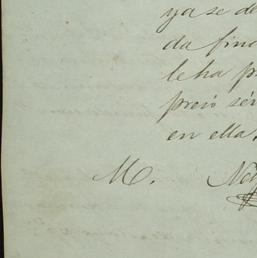 ya se de
da finc
le ha p
preis ser
en ella.
M.